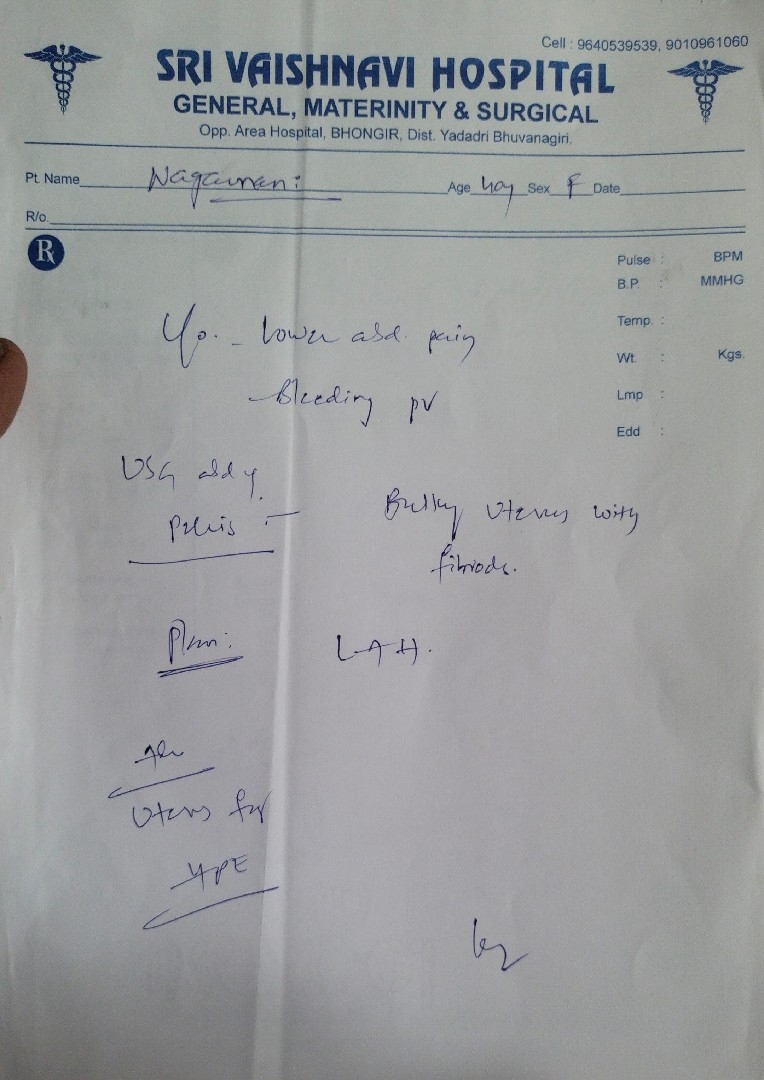 Cell : 9640539539, 9010961060
SRI VAISHNAVI HOSPITAL
GENERAL, MATERINITY & SURGICAL
Opp. Area Hospital, BHONGIR, Dist. Yadadri Bhuvanagiri.
Pt. Name Nagamani Age 40y Sex F Date
R/o.
Rx
Pulse : BPM
B.P. : MMHG
Temp. :
Wt. : Kgs.
Lmp :
Edd :
C/o. - Lower abd. pain
Bleeding pv
USG abd &
Pelvis :- Bulky Uterus with
fibriods.
Plan: LAH.
Uterus for
HPE